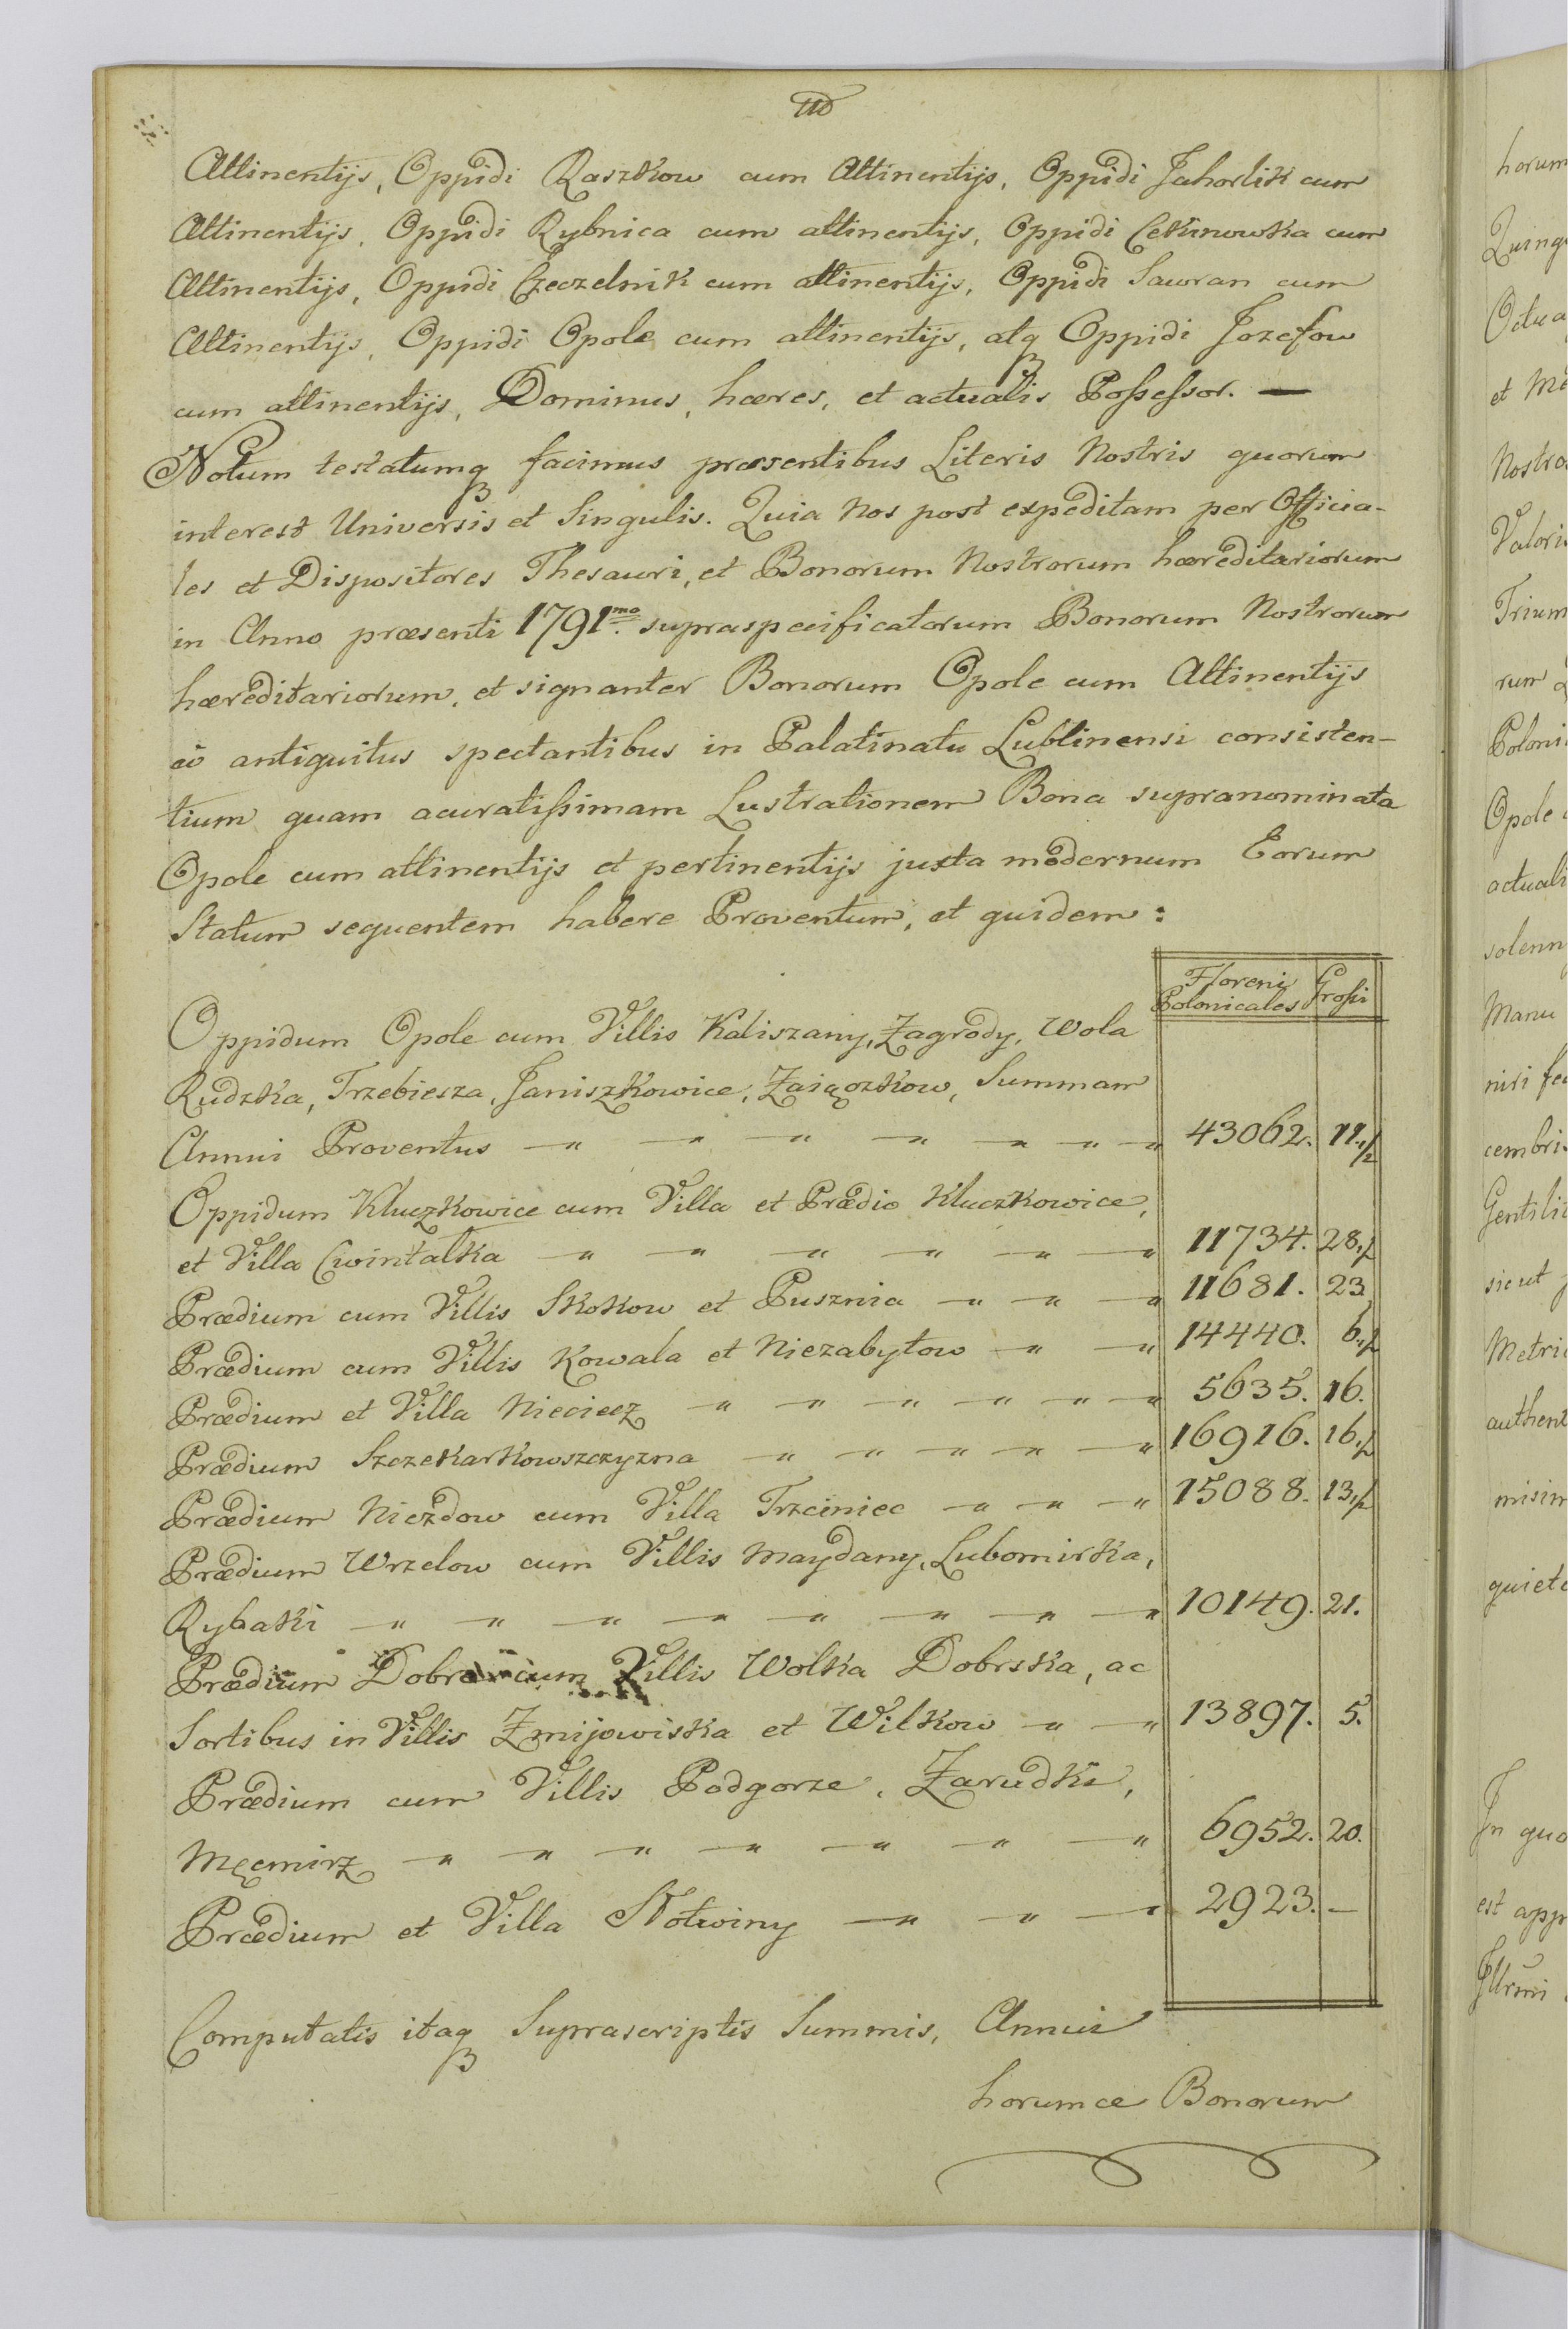 Attinentijs, Oppidi Raszkow cum Attinentijs, Oppidi Jahorlik cum
Attinentijs, Oppidi Rybnica cum attinentijs, Oppidi Cekinowka cum
Attinentijs, Oppidi Czeczelnik cum attinentijs, Oppidi Sawran cum
Attinentijs, Oppidi Opole cum attinentijs, atq Oppidi Jozefow
cum attinentijs, Dominus, hæres, et actualis Possessor. —
Notum testatumq facimus præsentibus Literis Nostris quorum
interest Universis et Singulis. Quia Nos post expeditam per Officia-
les et Dispositores Thesauri, et Bonorum Nostrorum hæreditariorum
in Anno præsenti 1791mo supraspecificatorum Bonorum Nostrorum
hæreditariorum, et signanter Bonorum Opole cum Attinentijs
eò antiquitus spectantibus in Palatinatu Lublinensi consisten-
tium quam acuratissimam Lustrationem Bona supranominata
Opole cum attinentijs et pertinentijs juxta modernum Eorum
Statum sequentem habere Proventum, et quidem:
Floreni Polonicales Grossi
Oppidum Opole cum Villis Kaliszany, Zagrody, Wola
Rudzka, Trzebiesza, Janiszkowice, Zaiączkow, Summam
Annui Proventus 43062. 11 1/2
Oppidum Kluczkowice cum Villa et Prædio Kluczkowice,
et Villa Cwintalka 11734. 28 1/2
Prædium cum Villis Skokow et Pusznia 11681. 23
Prædium cum Villis Kowala et Niezabytow 14440. 6 1/2
Prædium et Villa Nieciecz 5635. 16.
Prædium Szczekarkowszczyzna 16916. 16 1/2
Prædium Niezdow cum Villa Trzciniec 15088. 13 1/2
Prædium Wrzelow cum Villis Maydany, Lubomirka,
Rybaki 10149. 21.
Prædium Dobre cum Villis Wolka Dobrska, ac
Sortibus in Villis Zmijowiska et Wilkow 13897. 5.
Prædium cum Villis Podgorze, Zarudki,
Męcmirz 6952. 20.
Prædium et Villa Notwiny 2923. —
Computatis itaq Suprascriptis Summis, Annui
horumce Bonorum
horum
Octua
et
Nostro
Valoris
Trium
rum
Poloni
Opole
actuali
solenn
Manu
nisi
cembris
Gentili
sicut
Metri
authent
misim
quiet
In quo
est